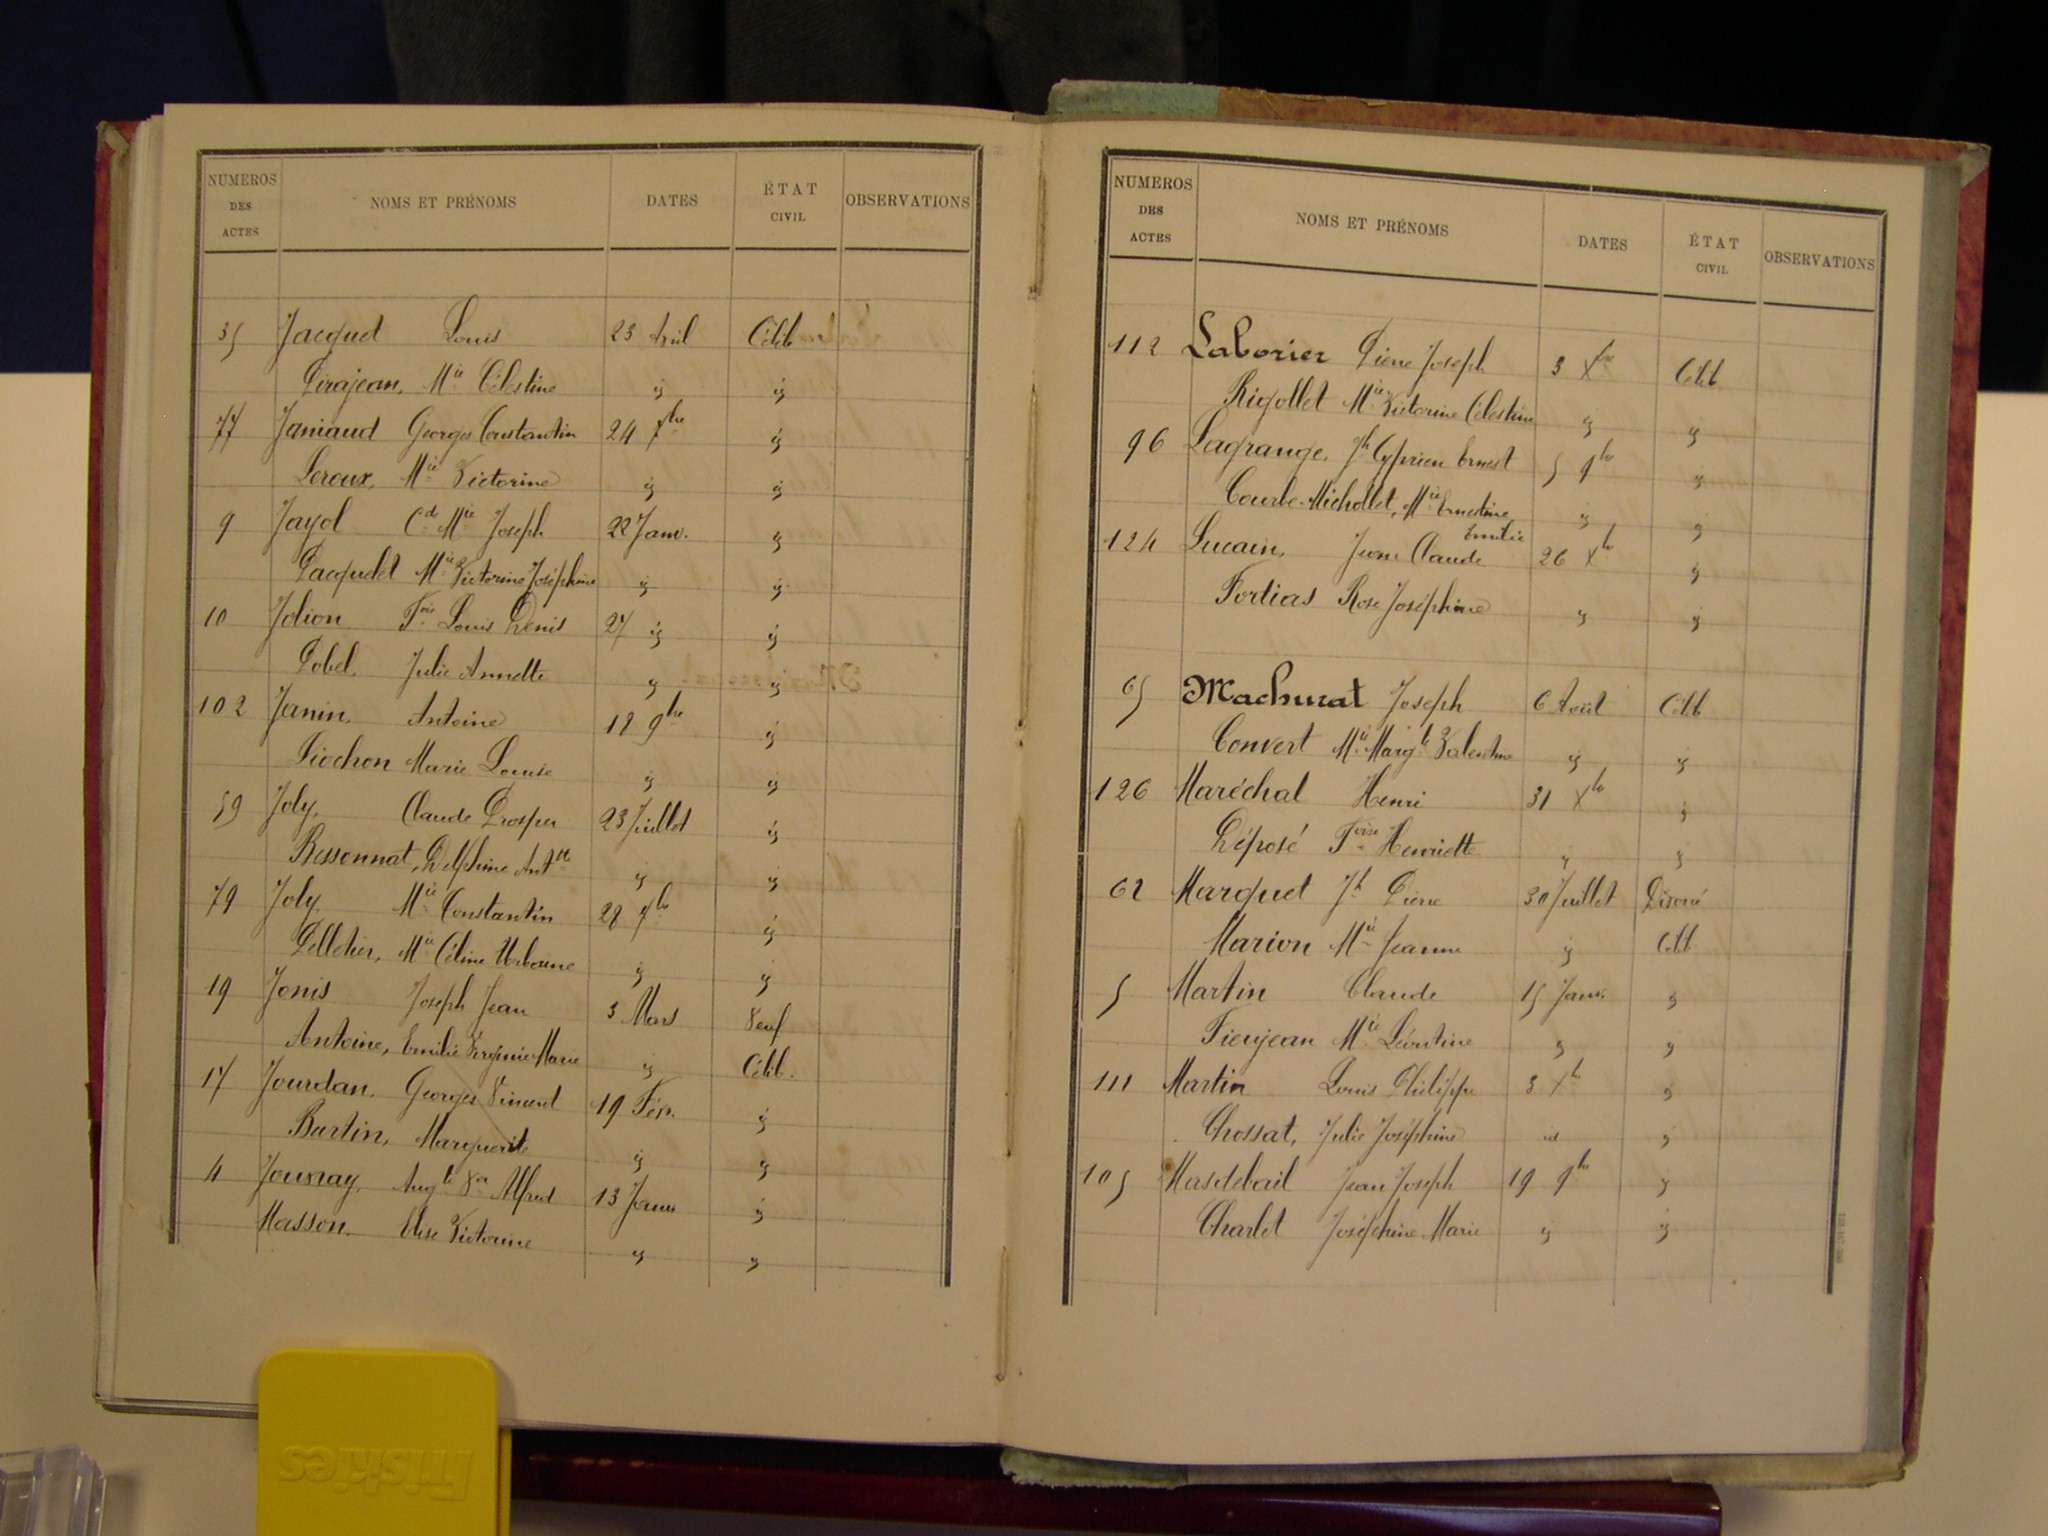 NUMEROS DES ACTES NOMS ET PRÉNOMS DATES ÉTAT CIVIL OBSERVATIONS
35 Jacquet Louis 23 Avril Célib
Pirajean, Mie Célestine id id
77 Janiaud Georges Constantin 24 7bre id
Leroux, Mie Victorine id id
9 Jayol Cde Mie Joseph 22 Janv. id
Pacquelet Mie Victorine Joséphine id id
10 Jolion Fois Louis Denis 27 id id
Pobel, Julie Annette id id
102 Janin, Antoine 18 9bre id
Piochon Marie Louise id id
59 Joly, Claude Prosper 23 Juillet id
Ressonnat, Delphine Antte id id
79 Joly, Mie Constantin 28 7bre id
Pelletier, Mie Céline Urbanne id id
19 Jonis Joseph Jean 3 Mars Veuf
Antoine, Emilie Virginie Marie id Célib.
17 Jourdan, Georges Vincent 19 Févr. id
Burtin, Marguerite id id
4 Jouvray, Augte Vor Alfred 13 Janv id
Masson Elise Victorine id id
NUMEROS DES ACTES NOMS ET PRÉNOMS DATES ÉTAT CIVIL OBSERVATIONS
112 Laborier Pierre Joseph 3 Xbre Célib
Rigollet Mie Victorine Célestine id id
96 Lagrange, Jh Cyprien Ernest 5 9bre id
Courbe-Michollet, Mie Ernestine Emilie id id
124 Lucain, Jean Claude 26 Xbre id
Fortias Rose Joséphine id id
65 Machurat Joseph 6 Août Célib
Convert Mie Margte Valentine id id
126 Maréchal Henri 31 Xbre id
Déposé Foise Henriette id id
62 Marquet Jh Pierre 30 Juillet Divorcé
Marion Mie Jeanne id Célib
5 Martin Claude 15 Janv. id
Fieujean Mie Léontine id id
111 Martin Louis Philippe 3 Xbre id
Chossat, Julie Joséphine id id
105 Masdebail Jean Joseph 19 9bre id
Charlet Joséphine Marie id id
Friskies